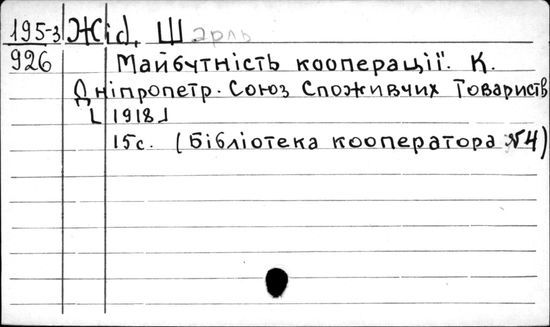 195-3 Жід, Шарль
926 Майбутність кооперації. К.
Дніпропетр. Союз Споживчих Товариств
[1918]
15с. (Бібліотека кооператора №4)